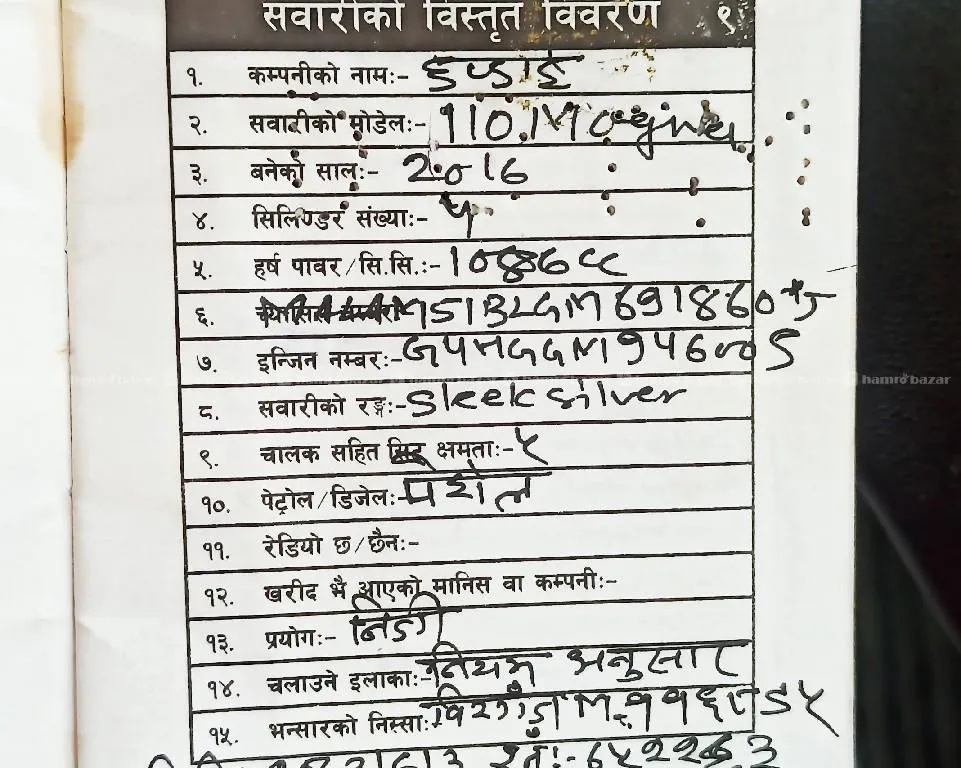 सवारीको विस्तृत विवरण ९
१. कम्पनीको नाम:- हुण्डाई
२. सवारीको मोडेल:- i10, Magna
३. बनेको साल:- 2016
४. सिलिण्डर संख्या:-
५. हर्ष पावर/सि.सि.:- 1086 cc
६.
७. इन्जिन नम्बर:- G4HGGM946005
८. सवारीको रङ्ग:- Sleek silver
९. चालक सहित सिट क्षमता:- ५
१०. पेट्रोल/डिजेल:- पेट्रोल
११. रेडियो छ/छैन:-
१२. खरीद भै आएको मानिस वा कम्पनी:-
१३. प्रयोग:- निजी
१४. चलाउने इलाका:- नियम अनुसार
१५. भन्सारको निस्सा:-
hamrobazar